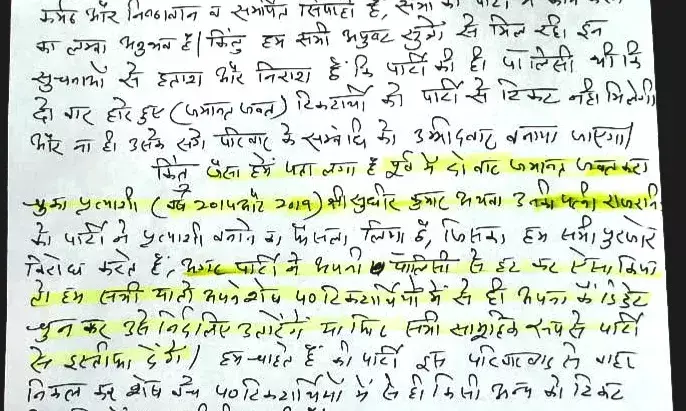 कर्मठ और निष्ठावान व समर्पित सिपाही हैं, सभी को पार्टी में काम करने
का लम्बा अनुभव है। किंतु हम सभी अपुष्ट सूत्रों से मिल रही इन
सूचनाओं से हताश और निराश हैं कि पार्टी की ही पालिसी थी कि
दो बार हारे हुए (जमानत जब्त) टिकटार्थी को पार्टी से टिकट नहीं मिलेगी
और ना ही उसके सगे परिवार के सम्बंधि को उम्मीदवार बनाया जाएगा।
किंतु जैसा हमें पता लगा है पूर्व में दो बार जमानत जब्त करा
चुका प्रत्याशी (वर्ष 2014 और 2019) श्री सुधीर कुमार अथवा उनकी पत्नी राजरानी
को पार्टी ने प्रत्याशी बनाने का फैसला लिया है, जिसका हम सभी पुरजोर
विरोध करते हैं, अगर पार्टी ने अपनी पालिसी से हट कर ऐसा किया
तो हम सभी या तो अपने शेष 40 टिकटार्थियों में से ही अपना कैंडिडेट
चुन कर उसे निर्दलिए उतारेंगे या फिर सभी सामूहिक रूप से पार्टी
से इस्तीफा देंगे। हम चाहते हैं की पार्टी इस परिवारवाद से बाहर
निकल कर शेष बचे 40 टिकटार्थियों में से ही किसी अन्य को टिकट